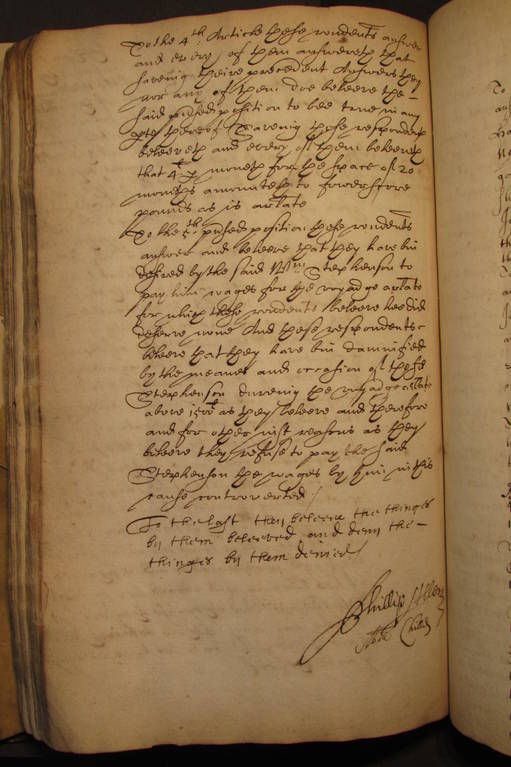 To the 4th Article these rondents answer
and every of them answereth that
saveing theire precedent Answers they
nor any of them doe beleeve the
said position to bee true in any
parte thereof Saveing these respondents
beleeveth and every of them beleeveth
that 4 li p moneth for the space of 20
moneths amounteth to fowerscore
pounds as is arlate
To the 5th position these rondents
answer and beleeve that they have bin
desired by the said Wm Stephenson to
pay him wages for the voyadge arlate
for which these rondents beleeve hee did
deserve none And these respondents
beleeve that they have bin damnified
by the meanes and occasion of the sd
Stephenson dureing the voyadge arlate
above 150 li as they beleeve and therefore
and for other just reasons as they
beleeve they refuse to pay the said
Stephenson the wages by him in this
cause controverted /
To the last they beleeve the thinges
by them beleeved and deny the
thinges by them denied /
Phillip